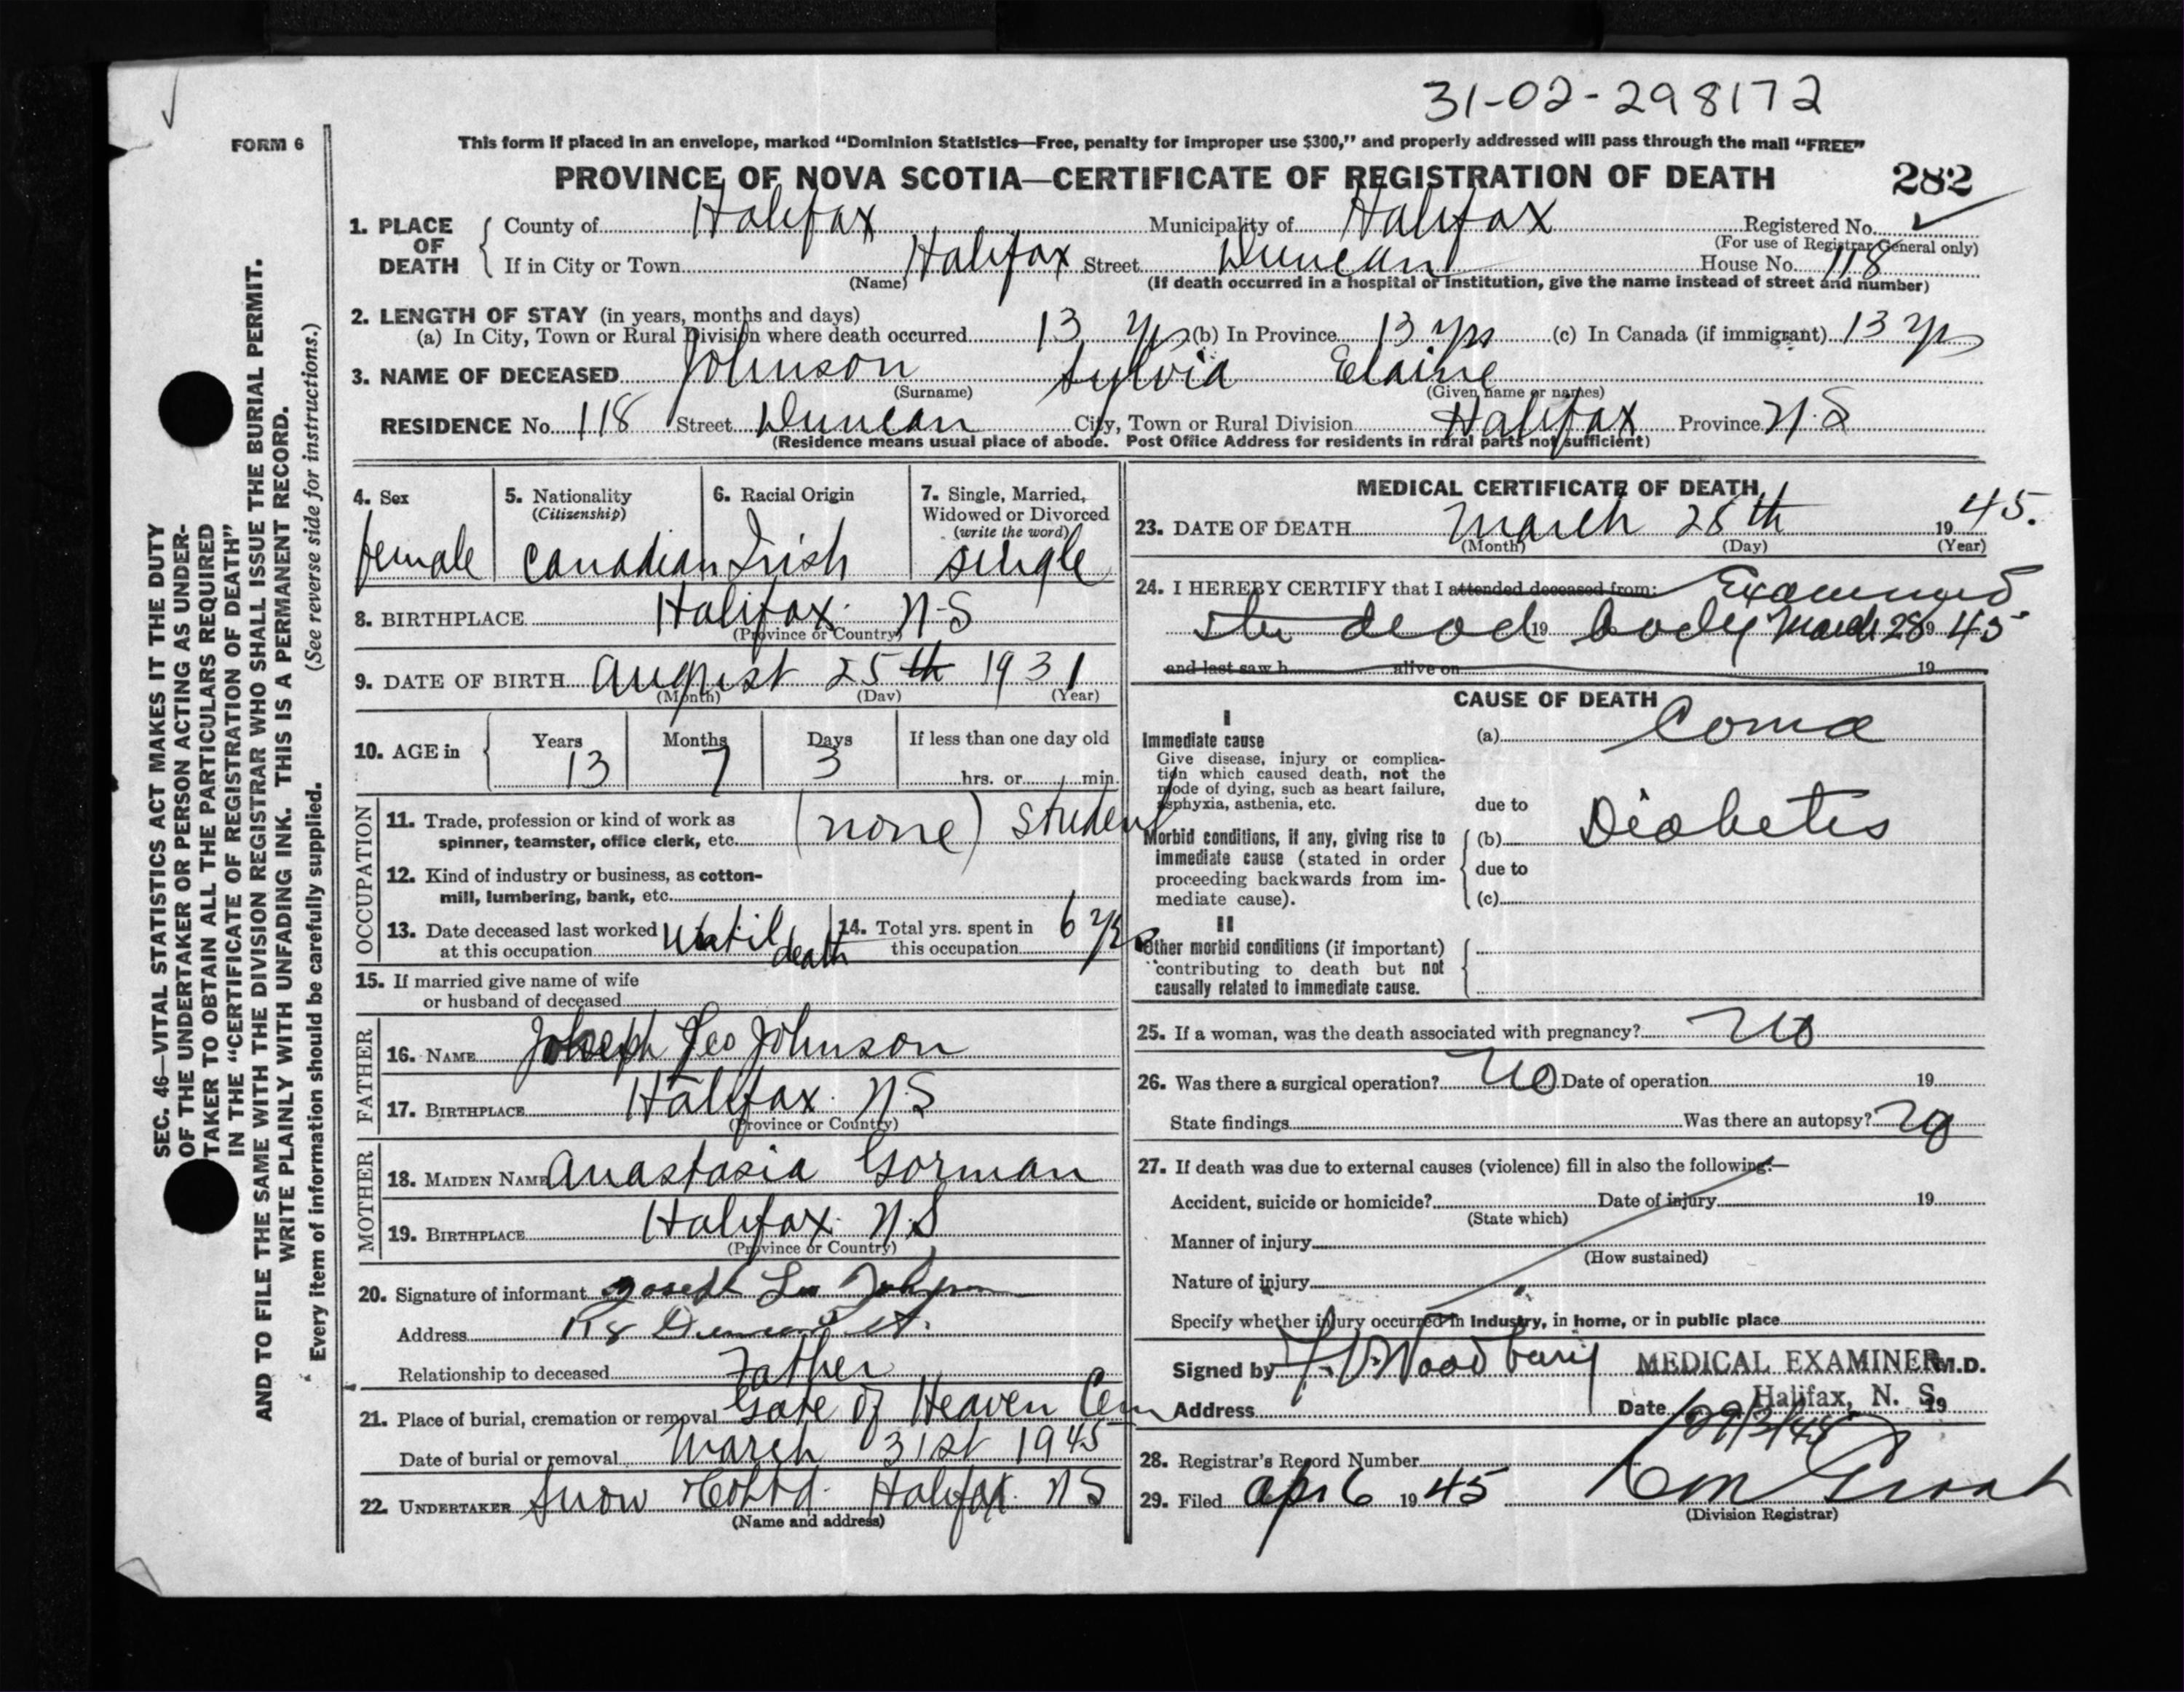 31-02-298172
FORM 6
This form if placed in an envelope, marked “Dominion Statistics—Free, penalty for improper use $300,” and properly addressed will pass through the mail “FREE”
PROVINCE OF NOVA SCOTIA—CERTIFICATE OF REGISTRATION OF DEATH 282
1. PLACE OF DEATH County of Halifax Municipality of Halifax Registered No.
(For use of Registrar General only)
If in City or Town Halifax Street Duncan House No. 118
(Name) (If death occurred in a hospital or institution, give the name instead of street and number)
2. LENGTH OF STAY (in years, months and days)
(a) In City, Town or Rural Division where death occurred 13 yrs (b) In Province 13 yrs (c) In Canada (if immigrant) 13 yrs
3. NAME OF DECEASED Johnson Sylvia Elaine
(Surname) (Given name or names)
RESIDENCE No. 118 Street Duncan City, Town or Rural Division Halifax Province N.S
(Residence means usual place of abode. Post Office Address for residents in rural parts not sufficient)
4. Sex
female
5. Nationality
(Citizenship)
Canadian
6. Racial Origin
Irish
7. Single, Married, Widowed or Divorced
(write the word)
single
8. BIRTHPLACE Halifax. N-S
(Province or Country)
9. DATE OF BIRTH August 25th 1931
(Month) (Day) (Year)
10. AGE in Years 13 Months 7 Days 3 If less than one day old
hrs. or min.
OCCUPATION
11. Trade, profession or kind of work as (none) student
spinner, teamster, office clerk, etc.
12. Kind of industry or business, as cotton-
mill, lumbering, bank, etc.
13. Date deceased last worked at this occupation Until death 14. Total yrs. spent in this occupation 6 yrs
15. If married give name of wife
or husband of deceased
FATHER
16. NAME Joseph Leo Johnson
17. BIRTHPLACE Halifax. N.S
(Province or Country)
MOTHER
18. MAIDEN NAME Anastasia Gorman
19. BIRTHPLACE Halifax. N.S
(Province or Country)
20. Signature of informant Joseph Leo Johnson
Address 118 Duncan St.
Relationship to deceased Father
21. Place of burial, cremation or removal Gate of Heaven Cem
Date of burial or removal March 31st 1945
22. UNDERTAKER Snow & Co Ltd. Halifax. NS
(Name and address)
MEDICAL CERTIFICATE OF DEATH
23. DATE OF DEATH March 28th 1945.
(Month) (Day) (Year)
24. I HEREBY CERTIFY that I attended deceased from: Examined
the dead 19 body March 28 1945
and last saw h alive on 19
CAUSE OF DEATH
I
Immediate cause (a) Coma
Give disease, injury or complica-
tion which caused death, not the
mode of dying, such as heart failure,
asphyxia, asthenia, etc.
due to
Morbid conditions, if any, giving rise to (b) Diabetes
immediate cause (stated in order
proceeding backwards from im-
mediate cause).
due to
(c)
II
Other morbid conditions (if important)
contributing to death but not
causally related to immediate cause.
25. If a woman, was the death associated with pregnancy? No
26. Was there a surgical operation? No Date of operation 19
State findings Was there an autopsy? No
27. If death was due to external causes (violence) fill in also the following:—
Accident, suicide or homicide? Date of injury 19
(State which)
Manner of injury
(How sustained)
Nature of injury
Specify whether injury occurred in industry, in home, or in public place
Signed by Woodbury MEDICAL EXAMINER M.D.
Address Date Halifax, N. S. 19
29/3/45
28. Registrar's Record Number
29. Filed Apr 6 1945
(Division Registrar)
SEC. 46—VITAL STATISTICS ACT MAKES IT THE DUTY
OF THE UNDERTAKER OR PERSON ACTING AS UNDER-
TAKER TO OBTAIN ALL THE PARTICULARS REQUIRED
IN THE “CERTIFICATE OF REGISTRATION OF DEATH”
AND TO FILE THE SAME WITH THE DIVISION REGISTRAR WHO SHALL ISSUE THE BURIAL PERMIT.
WRITE PLAINLY WITH UNFADING INK. THIS IS A PERMANENT RECORD.
Every item of information should be carefully supplied. (See reverse side for instructions.)